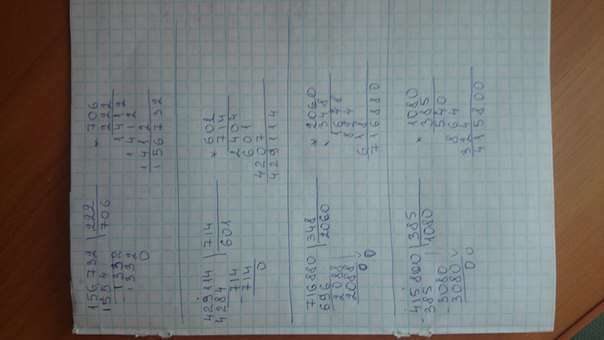 156732 | 222
1554 | 706
-1332
1332
0
× 706
222
1412
1412
1412
156732
429114 | 714
4284 | 601
-714
714
0
× 601
714
2404
601
4207
429114
716880 | 348
696 | 2060
-2088
2088
00
× 2060
348
1648
824
618
716880
-415800 | 385
385 | 1080
-3080
3080
00
× 1080
385
540
864
324
415800